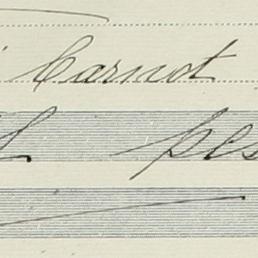 Carnot
pes